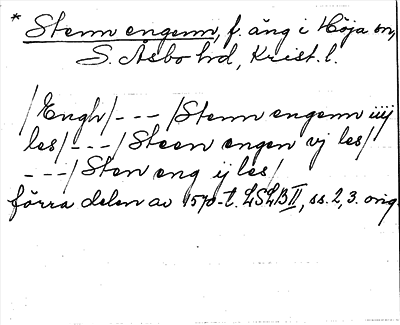 * Stenn engenn, f. äng i Höja sn,
S. Åsbo hd, Krist. l.
/Engh/ --- /Stenn engenn iiij
les/ --- /Steen engen vj les/
--- /Sten eng ij les/
förra delen av 1570-t. LSLB II, ss. 2, 3. orig.